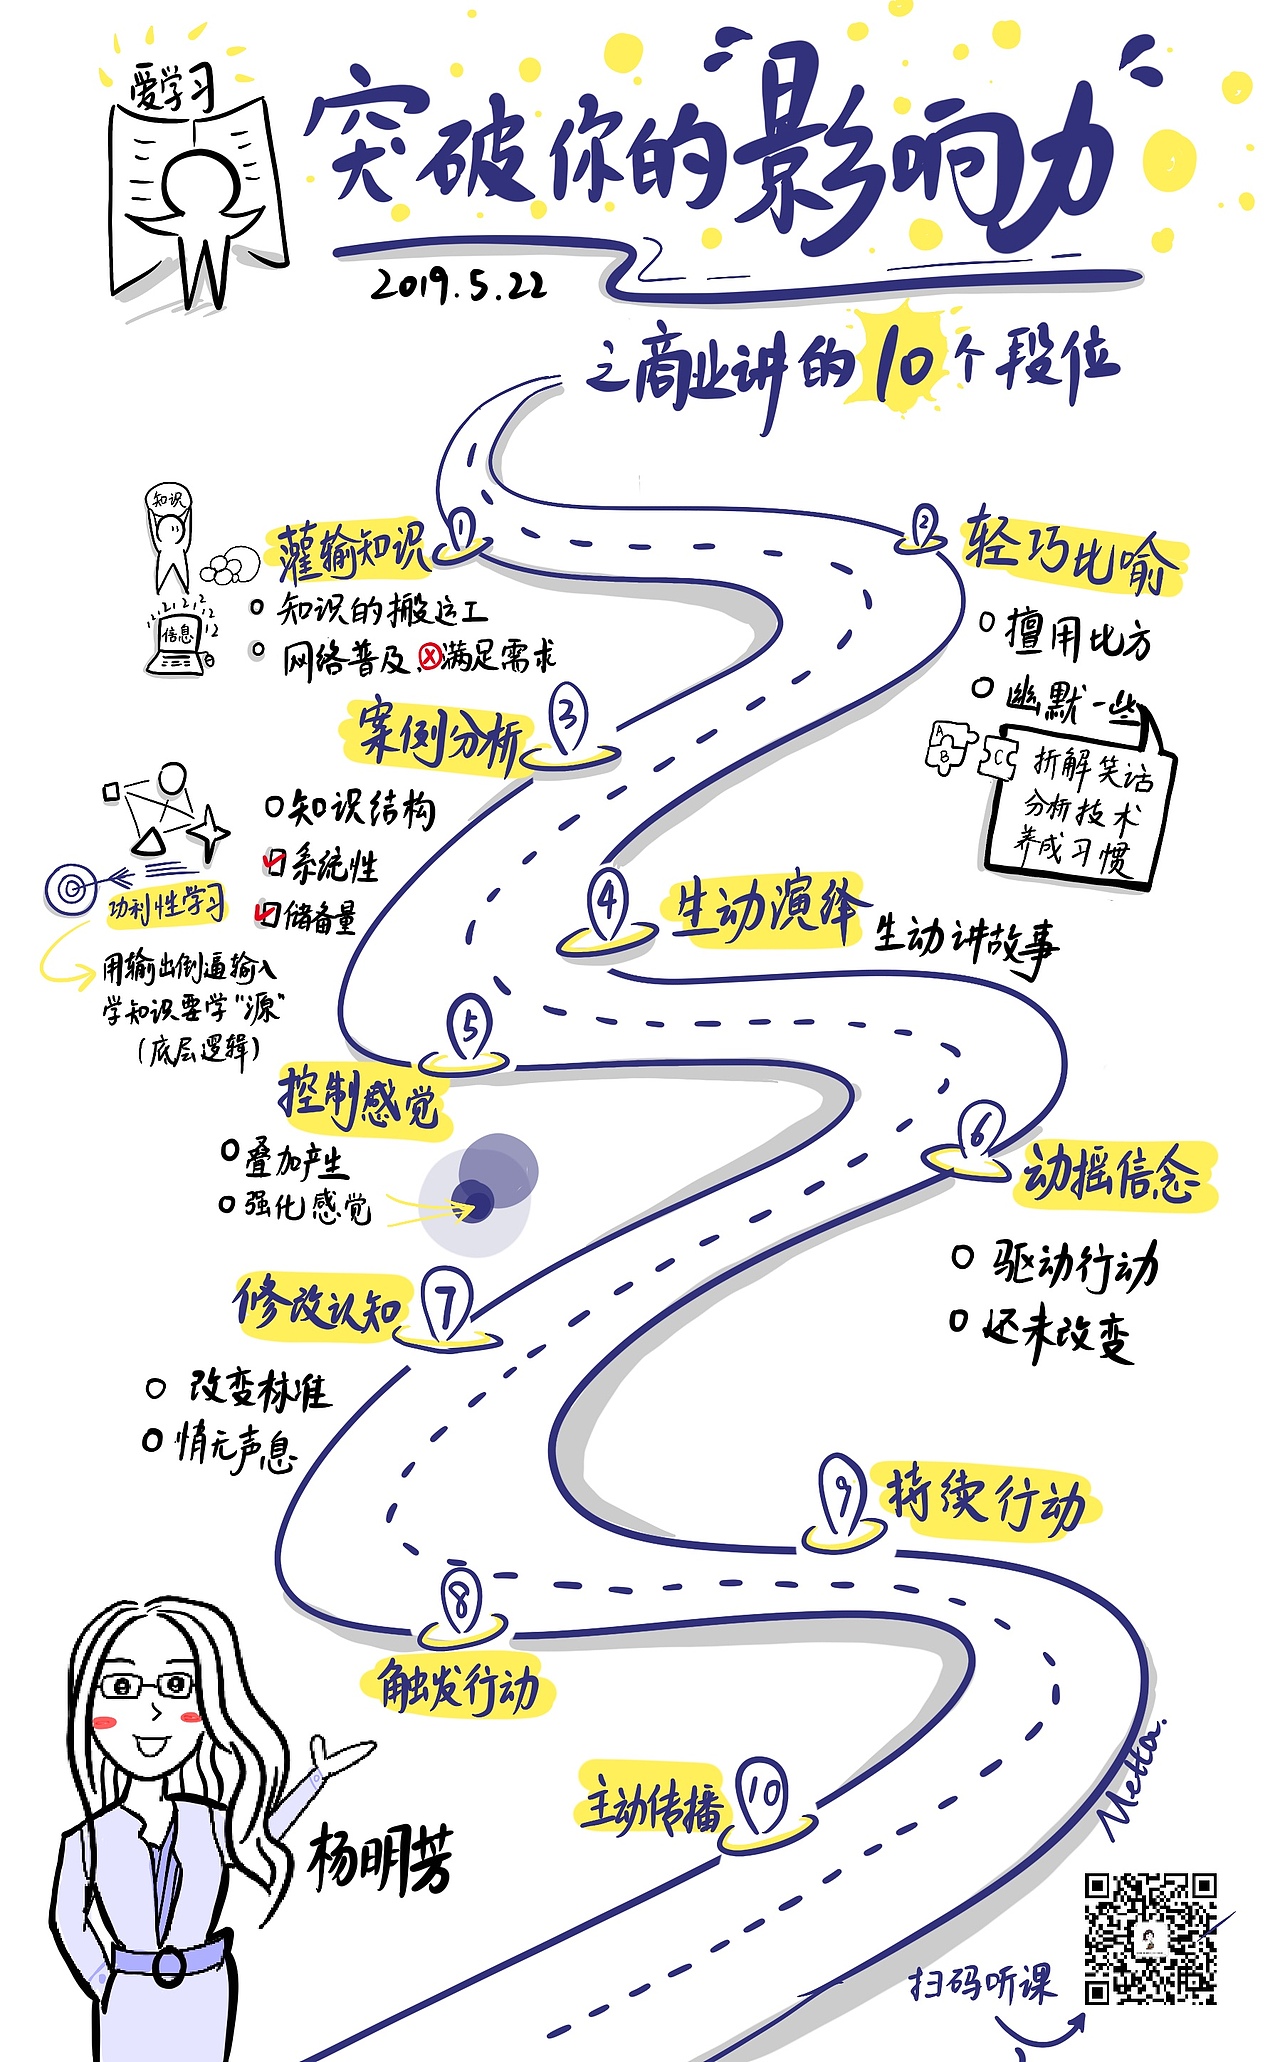 爱学习
突破你的"影响力"
2019.5.22
之商业讲的10个段位
知识
信息
1
灌输知识
知识的搬运工
网络普及,ⓧ满足需求
2
轻巧比喻
擅用比方
幽默一些
A
B
C
拆解笑话
分析技术
养成习惯
3
案例分析
知识结构
系统性
储备量
功利性学习
用输出倒逼输入
学知识要学"源"
(底层逻辑)
4
生动演绎
生动讲故事
5
控制感觉
叠加产生
强化感觉
6
动摇信念
驱动行动
还未改变
7
修改认知
改变标准
悄无声息
8
触发行动
9
持续行动
10
主动传播
杨明芳
Metta.
扫码听课